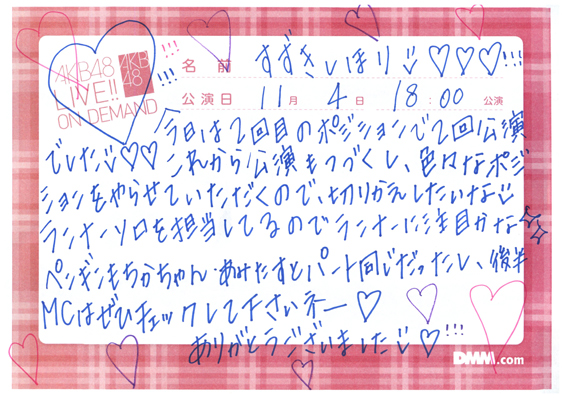 AKB48
LIVE!!
ON DEMAND
AKB
48
名前 すずきしほり♡♡♡!!!
公演日 11月4日 18:00 公演
今日は2回目のポジションで2回公演
でした♡♡ これから公演もつづくし、色々なポジ
ションをやらせていただくので、切りかえしたいな
ランナーソロを担当してるのでランナーに注目かな
ペンギンもちかちゃん・あみたすとパート同じだったし、後半
MCはぜひチェックして下さいネー♡
ありがとうございました♡!!!
DMM.com